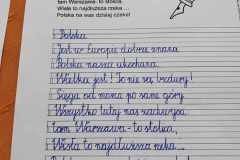 tam Warszawa, to stolica,
Wisła to najdłuższa rzeka...
Polska na was dzisiaj czeka!
Polska
Jest w Europie dobrze znana
Polska nasza ukochana.
Wielka jest! To nie są bzdury!
Sięga od morza po same góry.
Wszystko tutaj nas zachwyca
tam Warszawa - to stolica,
Wisła to najdłuższa rzeka...